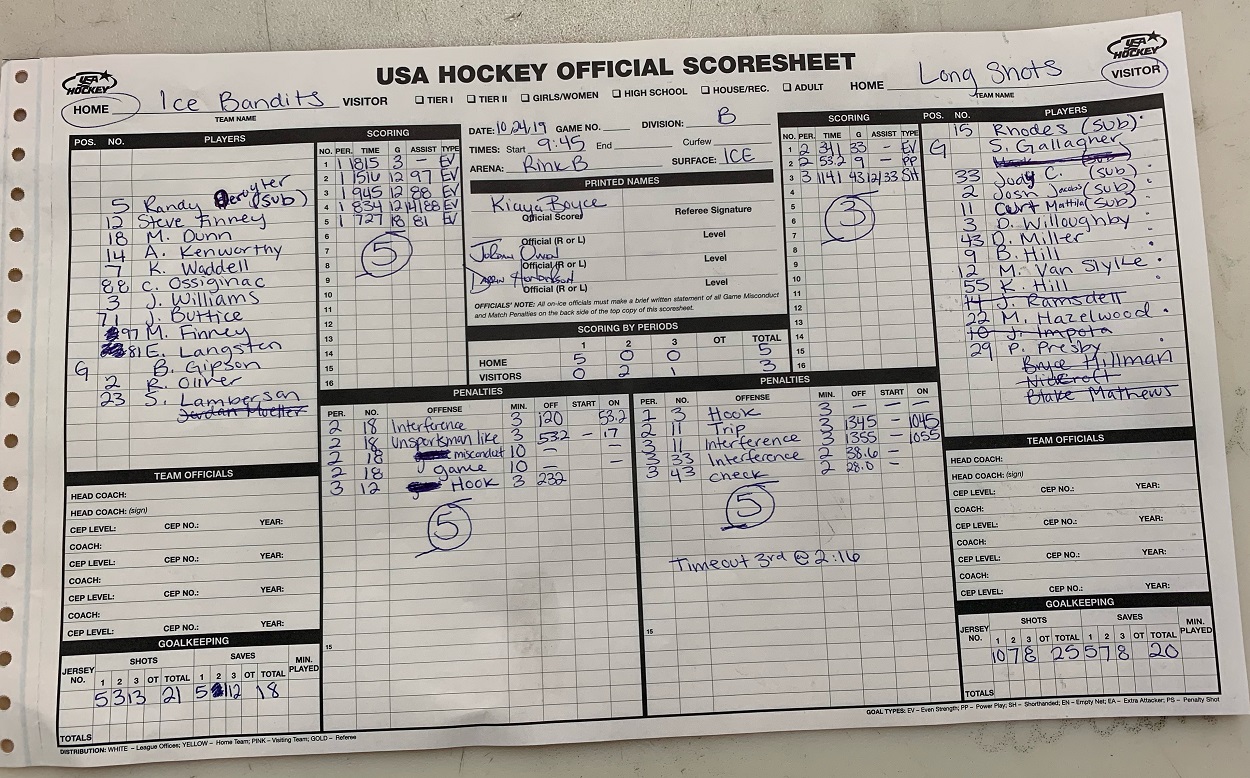 USA HOCKEY OFFICIAL SCORESHEET
USA HOCKEY
USA HOCKEY
HOME Ice Bandits VISITOR
TEAM NAME
☐ TIER I ☐ TIER II ☐ GIRLS/WOMEN ☐ HIGH SCHOOL ☐ HOUSE/REC. ☐ ADULT
HOME Long Shots VISITOR
TEAM NAME
POS. NO. PLAYERS
5 Randy (sub)
12 Steve Finney
18 M. Dunn
14 A. Kenworthy
7 K. Waddell
88 C. Ossiginac
3 J. Williams
71 J. Buttice
97 M. Finney
81 E. Langston
G B. Gipson
2 R. Oliver
23 S. Lamberson
Jordan Mueller
SCORING
NO. PER. TIME G ASSIST TYPE
1 1 1815 3 - EV
2 1 1516 12 97 EV
3 1 945 12 88 EV
4 1 834 12 14/88 EV
5 1 727 18 81 EV
6
7
8
9
10
11
12
13
14
15
16
5
DATE: 10/24/19 GAME NO. DIVISION: B
TIMES: Start 9:45 End Curfew
ARENA: Rink B SURFACE: ICE
PRINTED NAMES
Kiaya Boyce
Official Scorer Referee Signature
Official (R or L) Level
Official (R or L) Level
Official (R or L) Level
OFFICIALS' NOTE: All on-ice officials must make a brief written statement of all Game Misconduct
and Match Penalties on the back side of the top copy of this scoresheet.
SCORING BY PERIODS
1 2 3 OT TOTAL
HOME 5 0 0 5
VISITORS 0 2 1 3
SCORING
NO. PER. TIME G ASSIST TYPE
1 2 341 33 - EV
2 2 53.2 9 - PP
3 3 1141 43 12/33 SH
4
5
6
7
8
9
10
11
12
13
14
15
16
3
POS. NO. PLAYERS
15 Rhodes (sub)
G S. Gallagher
33 Judy C. (sub)
2 Josh Jacobs (sub)
11 Curt Mattila (sub)
3 D. Willoughby
43 D. Miller
9 B. Hill
12 M. Van Slyke
55 K. Hill
14 J. Ramsdell
22 M. Hazelwood
10 J. Impota
29 P. Presby
Bryce Hillman
Blake Mathews
PENALTIES
PER. NO. OFFENSE MIN. OFF START ON
2 18 Interference 3 120 53.2
2 18 Unsportsman like 3 532 - 17
2 18 misconduct 10 - -
2 18 game 10 - -
3 12 Hook 3 232
5
15
PENALTIES
PER. NO. OFFENSE MIN. OFF START ON
1 3 Hook 3 - -
2 11 Trip 3 1345 - 1045
3 11 Interference 3 1355 - 1055
3 33 Interference 2 38.6 -
3 43 check 2 28.0 -
5
Timeout 3rd @ 2:16
15
TEAM OFFICIALS
HEAD COACH:
HEAD COACH: (sign)
CEP LEVEL: CEP NO.: YEAR:
COACH:
CEP LEVEL: CEP NO.: YEAR:
COACH:
CEP LEVEL: CEP NO.: YEAR:
COACH:
CEP LEVEL: CEP NO.: YEAR:
TEAM OFFICIALS
HEAD COACH:
HEAD COACH: (sign)
CEP LEVEL: CEP NO.: YEAR:
COACH:
CEP LEVEL: CEP NO.: YEAR:
COACH:
CEP LEVEL: CEP NO.: YEAR:
COACH:
CEP LEVEL: CEP NO.: YEAR:
GOALKEEPING
JERSEY NO. SHOTS SAVES MIN. PLAYED
1 2 3 OT TOTAL 1 2 3 OT TOTAL
5 3 13 21 5 1 12 18
TOTALS
GOALKEEPING
JERSEY NO. SHOTS SAVES MIN. PLAYED
1 2 3 OT TOTAL 1 2 3 OT TOTAL
10 7 8 25 5 7 8 20
TOTALS
DISTRIBUTION: WHITE – League Offices; YELLOW – Home Team; PINK – Visiting Team; GOLD – Referee
GOAL TYPES: EV – Even Strength; PP – Power Play; SH – Shorthanded; EN – Empty Net; EA – Extra Attacker; PS – Penalty Shot